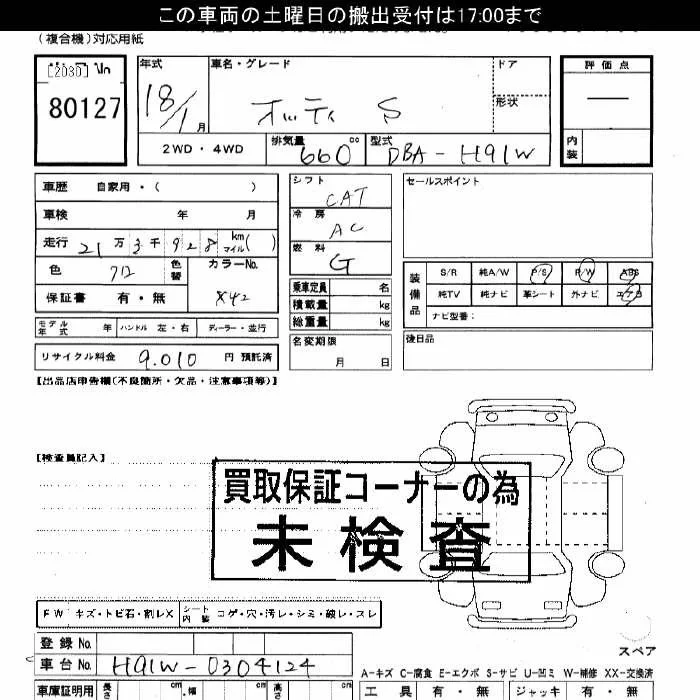 この車両の土曜日の搬出受付は17:00まで
(複合機)対応用紙
80127
年式 車名・グレード ドア 評価点
18/1月 オッティ S 形状 ―
2WD・4WD 排気量 660 cc 型式 DBA-H91W 内装
車歴 自家用・( ) シフト CAT セールスポイント
車検 年 月 冷房 AC
走行 21万3千928 km マイル( ) 燃料 G
色 色替 カラーNo. X42
保証書 有・無
乗車定員 名
積載量 kg
総重量 kg
装備品 S/R 純A/W P/S P/W ABS
純TV 純ナビ 革シート 外ナビ エアB
ナビ型番:
モデル年式 年 ハンドル 左・右 ディーラー・並行 名変期限 月 日 後日品
リサイクル料金 9,010 円 預託済
【出品店申告欄(不良箇所・欠品・注意事項等)】
【検査員記入】
買取保証コーナーの為
未検査
FW キズ・トビ石・割レX シート内装 コゲ・穴・汚レ・シミ・破レ・スレ
登録No.
車台No. H91W-0304124
スペア
A-キズ C-腐食 E-エクボ S-サビ U-凹ミ W-補修 XX-交換済
車庫証明用 長さ cm 幅 cm 高さ cm 工具 有・無 ジャッキ 有・無